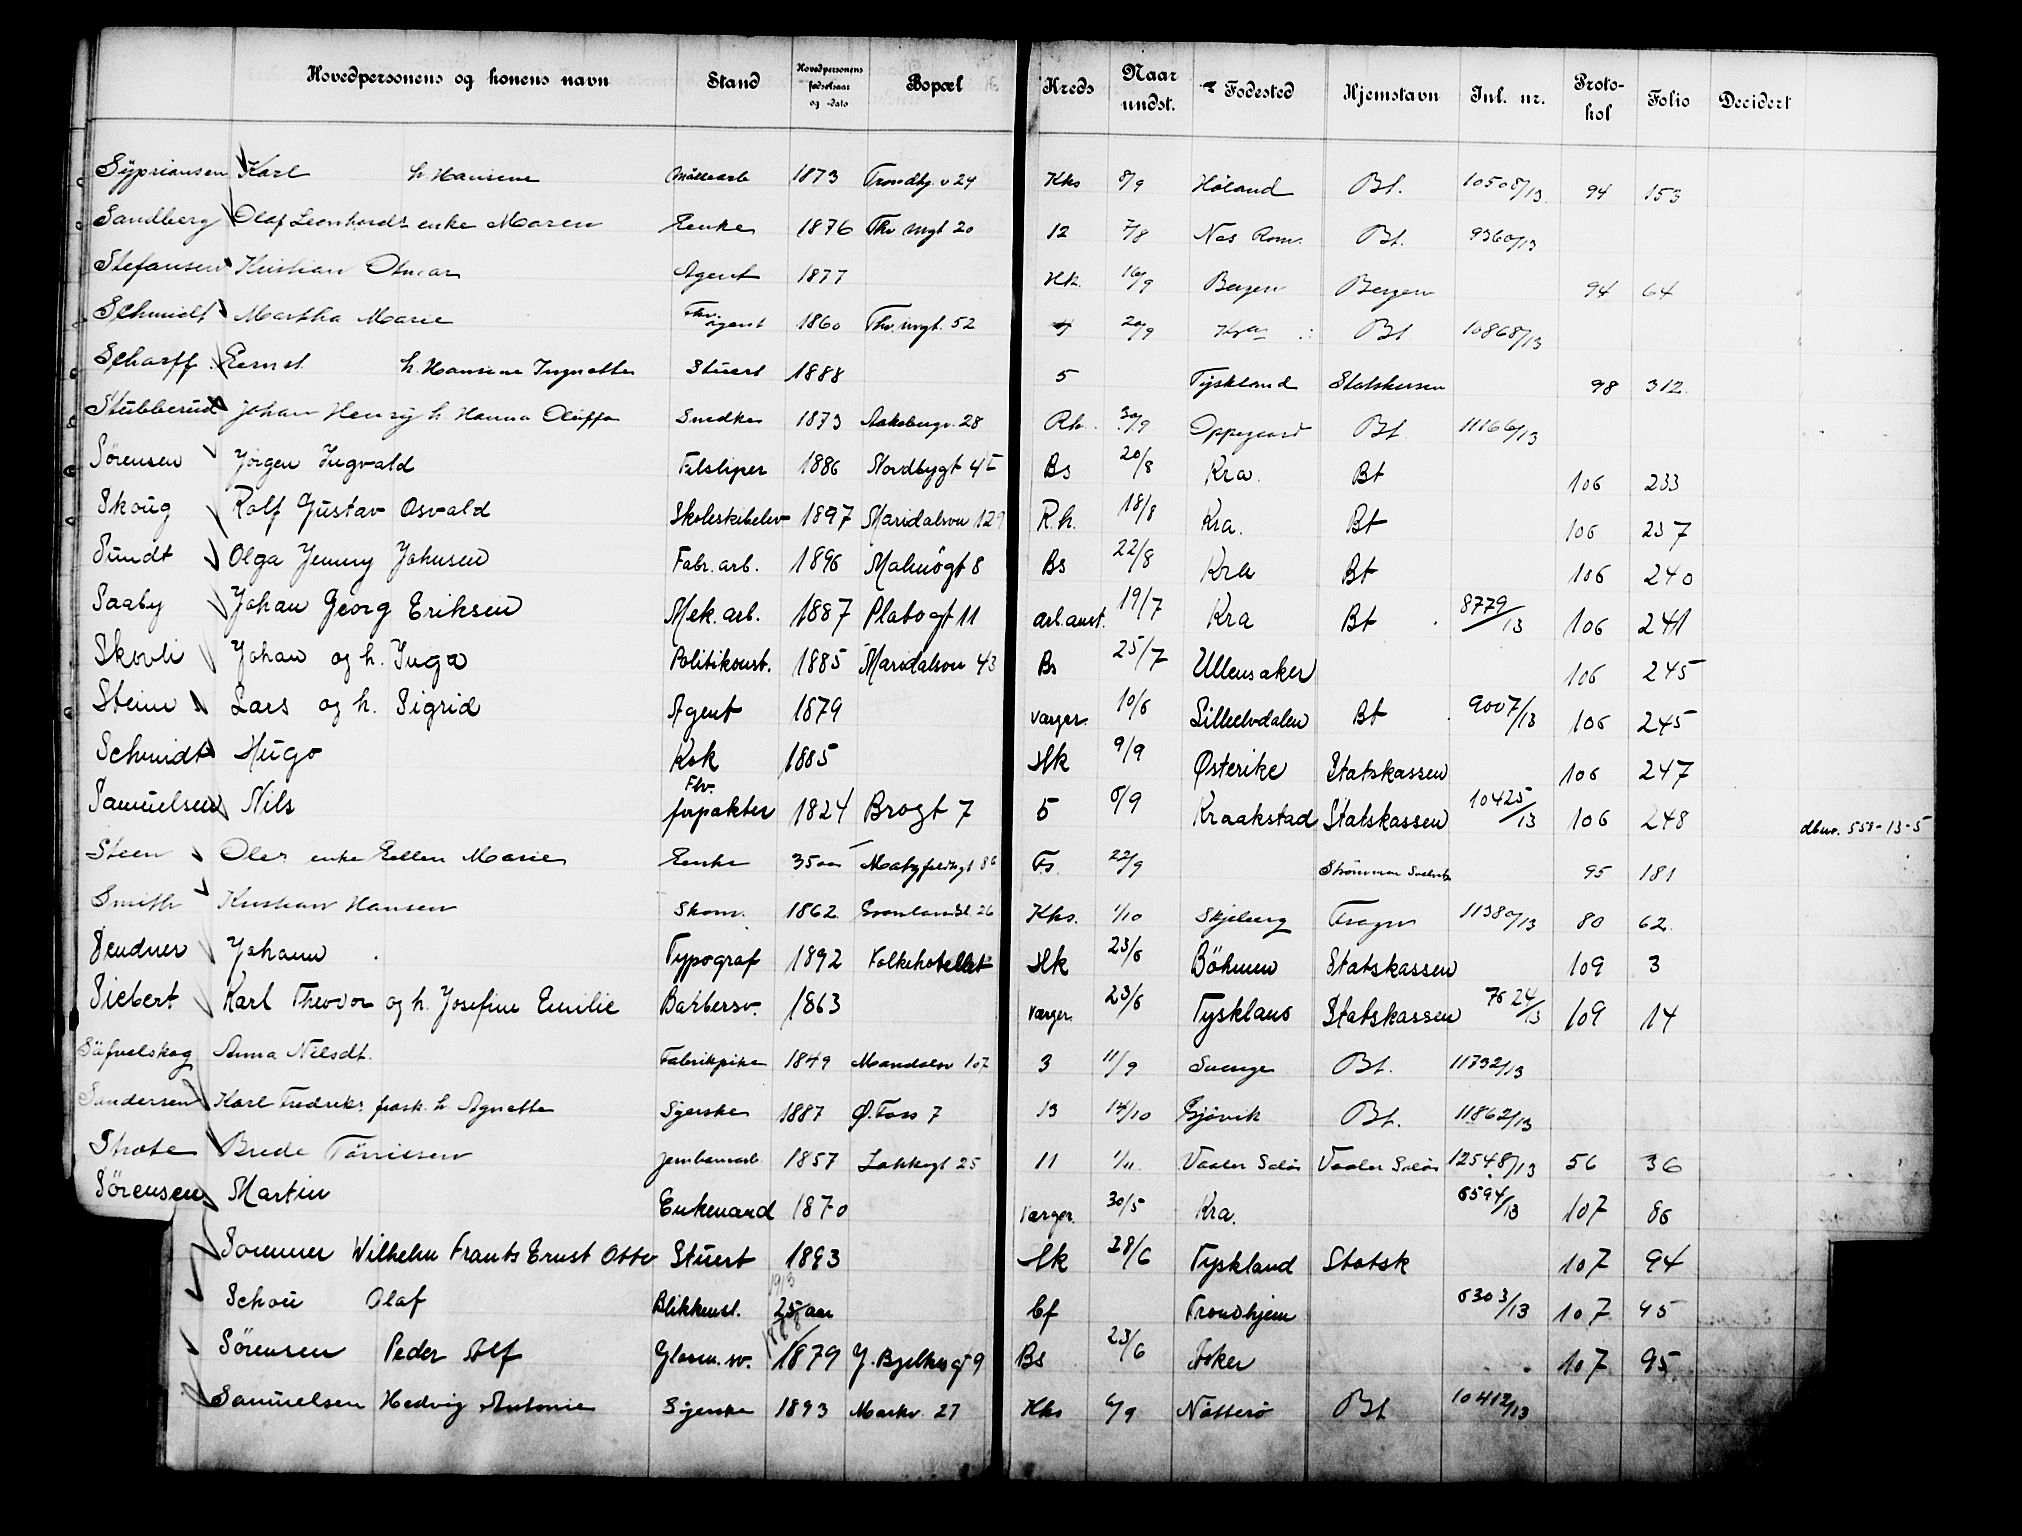 Hovedpersonens og konens navn Stand Hovedpersonens fødselsaar og -dato Bopæl Kreds Naar undst. Fodested Hjemstavn Inl. nr. Proto-kol Folio Decidert
Sÿpriansen Karl h. Hansine 1873 Trondhj. v 24 Khs 8/9 Høland Bt. 10508/13 94 153
Sandberg Olaf Leonhards enke Maren Enke 1876 Thv. Mgt 20 12 7/8 Nes Rom. Bt. 9360/13
Stefansen Kristian Otmar Agent 1877 Hk. 16/9 Bergen Bergen 94 64
Schmidt Martha Marie Fhv. agent 1860 Thv. Mgt. 52 4 20/9 Kra Bt 10868/13
Scharff Ernst h. Hansine Ingnette Stuert 1888 5 Tyskland Statskassen 98 312
Stubberud Johan Henrÿ h. Hanna Oluffa Snedker 1873 Aakebergv. 28 Rh. 30/9 Oppegaard Bt. 11166/13
Sørensen Jørgen Ingvald Filsliper 1886 Nordbygt 45 Bs 20/8 Kra. Bt 106 233
Skoug Rolf Gustav Osvald Skoleskibelev 1897 Maridalsvn 129 R.h. 18/8 Kra. Bt 106 237
Sundt Olga Jenny Johnsen Fabr. arb. 1896 Malmøgt 8 Bs 22/8 Kra Bt 106 240
Saaby Johan Georg Eriksen Mek. arb. 1887 Platougt 11 arb.anst. 19/7 Kra Bt 8779/13 106 241
Skovli Johan og h. Inga Politikonst. 1885 Maridalsvn 43 Bs 25/7 Ullensaker 106 245
Steim Lars og h. Sigrid Agent 1879 værger. 10/6 Lilleelvdalen Bt 9007/13 106 245
Schmidt Hugo Kok 1885 Hk 9/9 Østerike Statskassen 106 247
Samuelsen Nils Fhv. forpakter 1824 Brogt 7 5 6/9 Kraakstad Statskassen 10425/13 106 248 dbno. 558-13-5
Steen Oles enke Ellen Marie Enke 35 aar 86 Fs. 22/9 Strømmen 95 181
Smith Kristian Hansen Skom. 1862 Grønlandsl. 26 Khs. 1/10 Skjeberg Trøgst 11380/13 80 62
Sendner Johann Typograf 1892 Folkehotellet Hk 23/6 Böhmen Statskassen 109 3
Siebert Karl Theodor og h. Josefine Emilie Barbersv. 1863 værger. 23/6 Tyskland Statskassen 7624/13 109 14
Säfvelskog Anna Nilsdt. Fabrikpike 1849 Maridalsv 107 3 11/9 Sverige Bt. 11732/13
Sandersen Karl Fredriks frask. h. Agnette Syerske 1887 Ø. Foss 7 13 14/10 Gjøvik Bt. 11862/13
Strøte Brede Tønnesen Jernbanearb. 1857 Lakkegt 25 11 1/11 Vaaler Solør Vaaler Solør 12548/13 56 36
Sørensen Martin Enkemand 1870 Værger. 30/5 Kra. 6594/13 107 86
Sommer Wilhelm Frants Ernst Otto Stuert 1893 Hk 28/6 Tyskland Statsk 107 94
Schou Olaf Blikkensl. 25 aar 1913 1888 Cf Trondhjem 6303/13 107 95
Sørensen Peder Alf Glasm. sv. 1879 J. Bjelkes gt 9 Bs 23/6 Aker 107 95
Samuelsen Hedvig Antonie Syerske 1893 Markv 27 Khs 6/9 Nøtterø Bt 10412/13